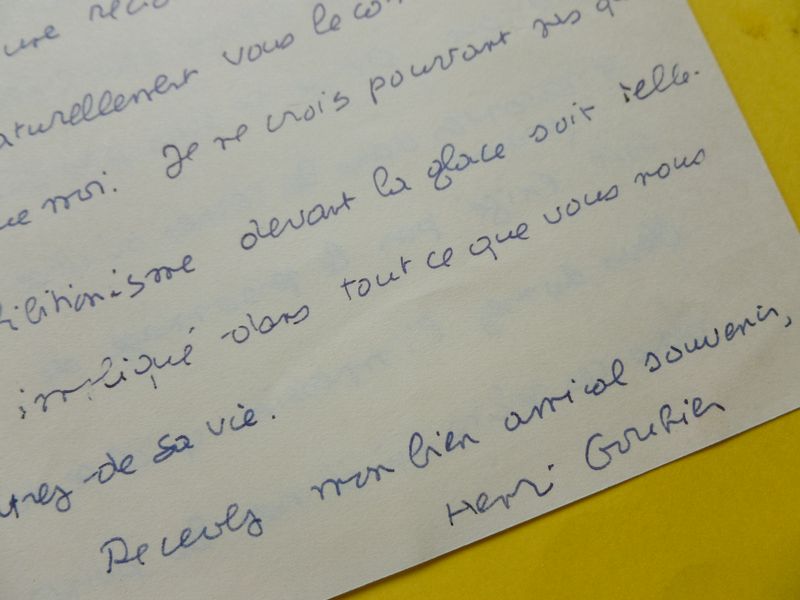 une
naturellement vous le con
que moi. Je ne crois pourtant pas que
hibitionisme devant la glace soit telle.
impliqué dans tout ce que vous nous
de sa vie.
Recevez mon bien amical souvenir,
Henri Gouhier